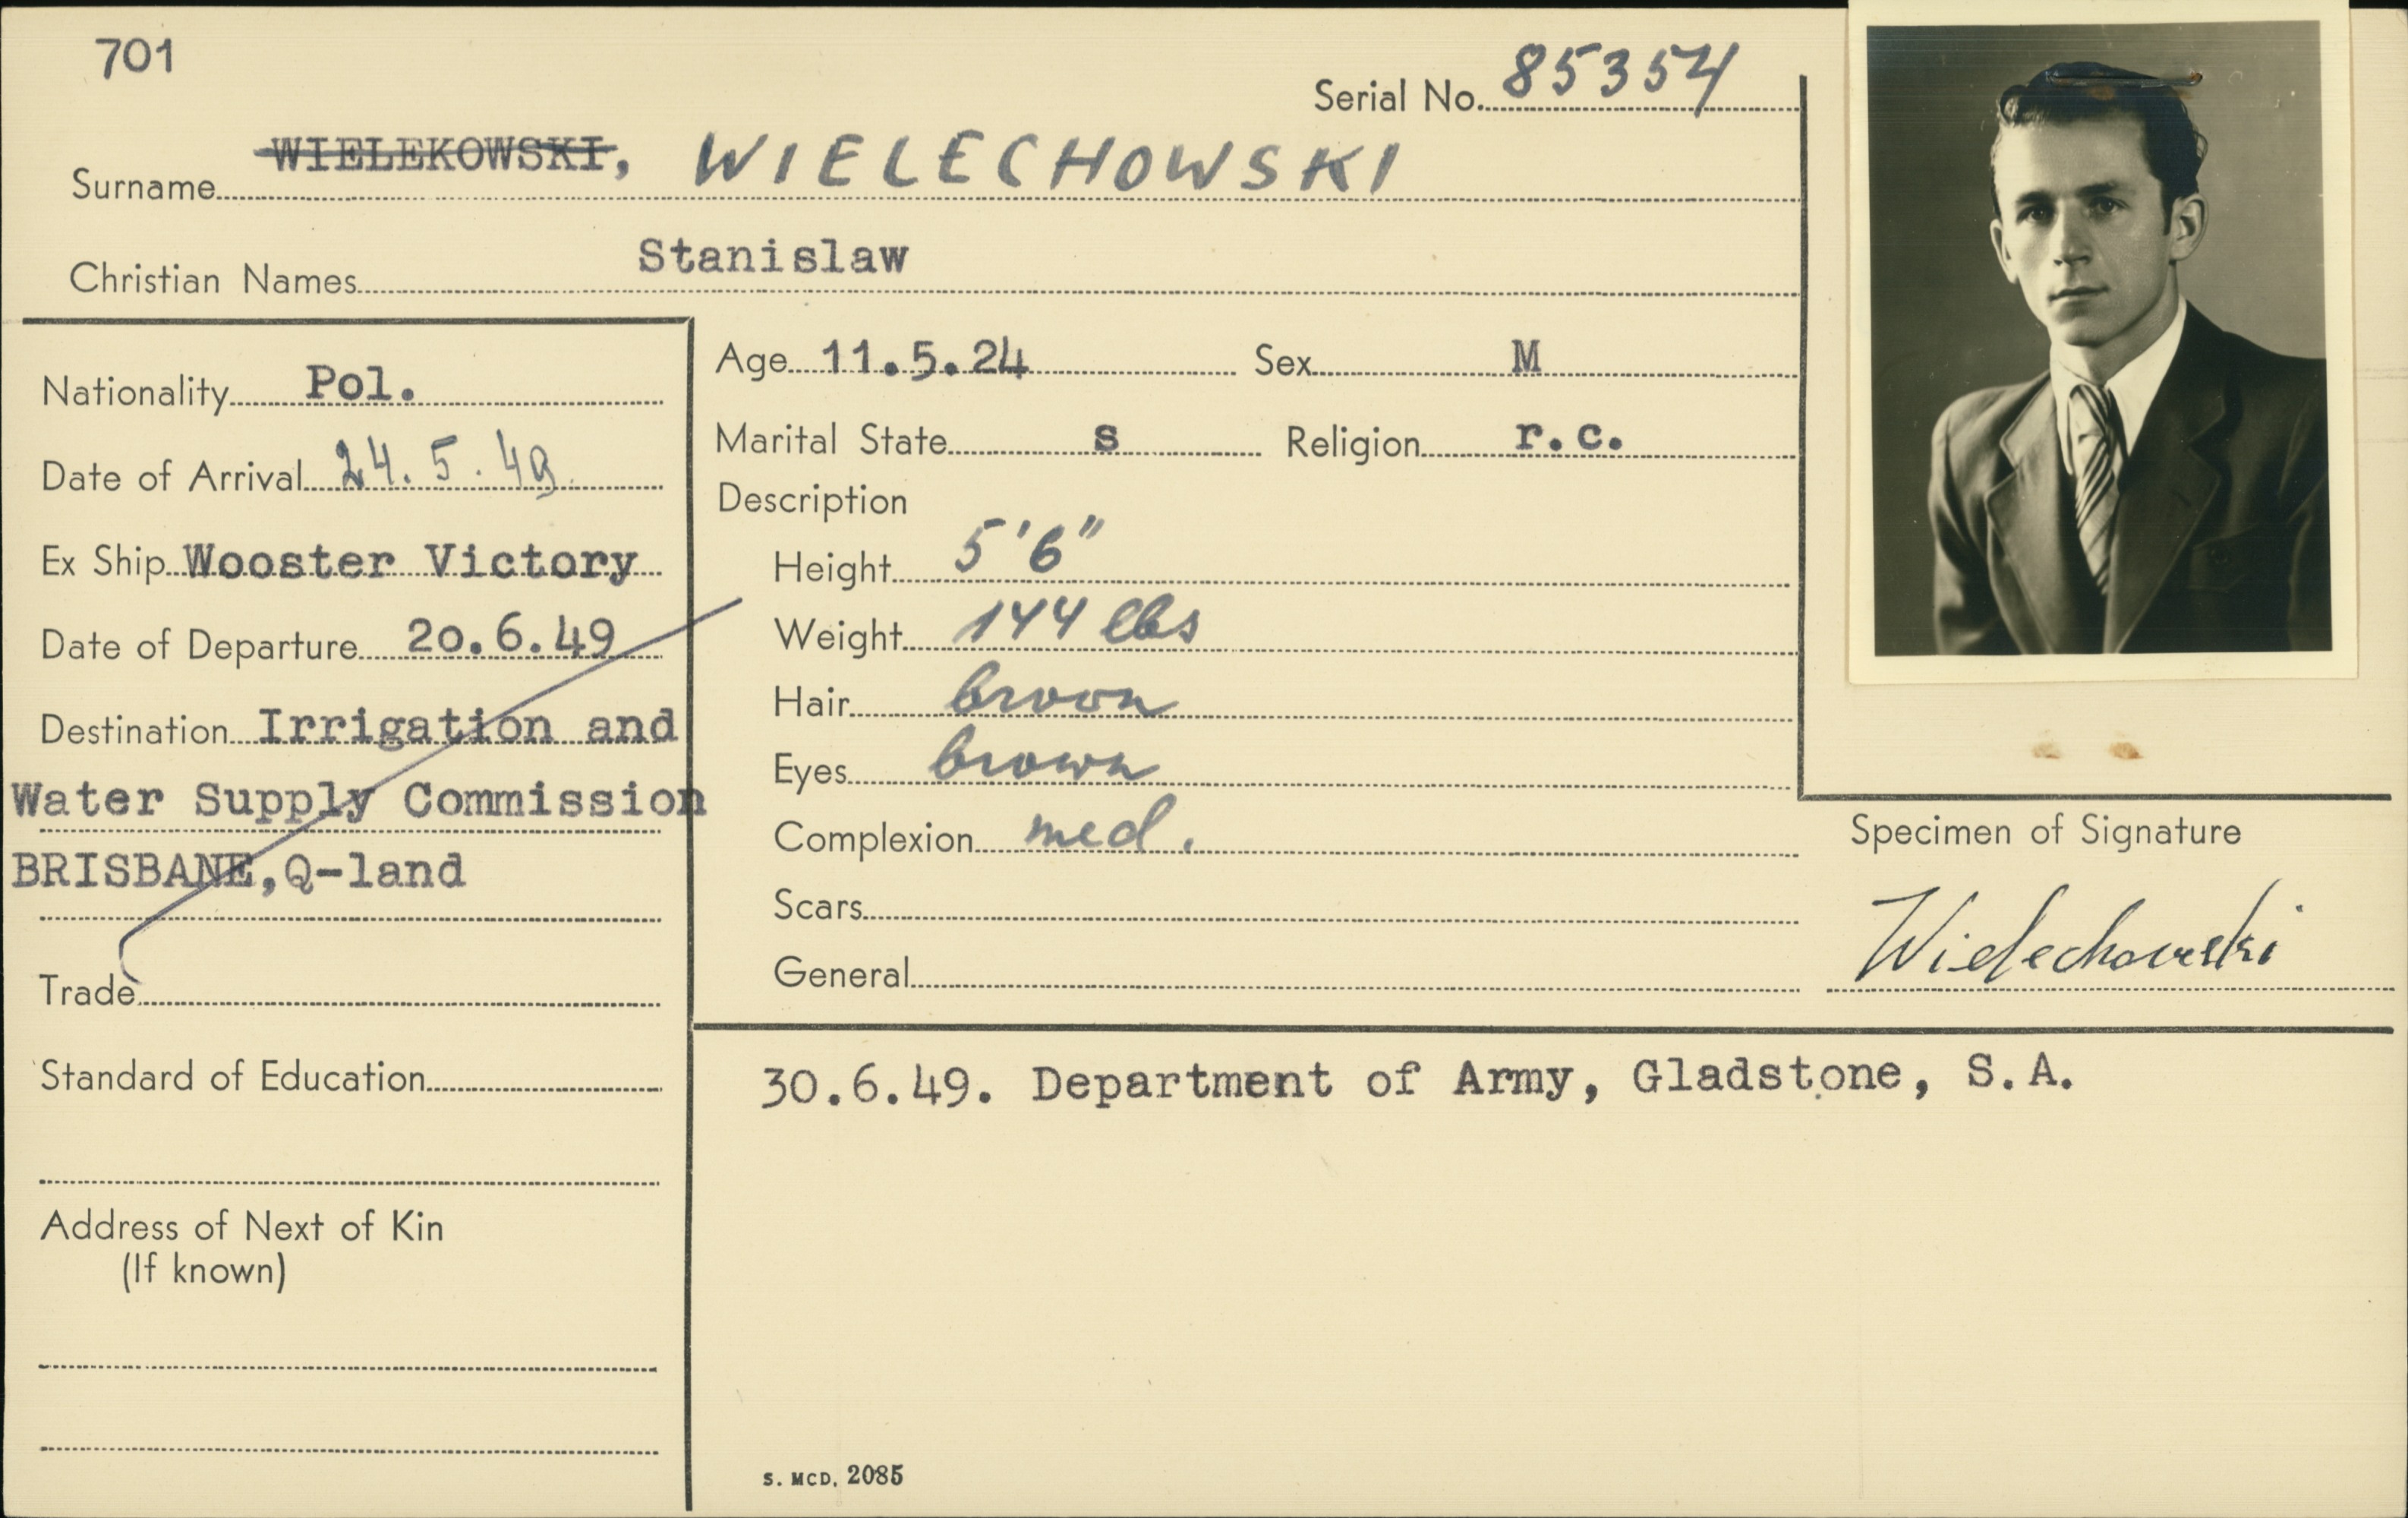 701
Serial No. 85354
Surname WIELEKOWSKI, WIELECHOWSKI
Christian Names Stanislaw
Nationality Pol.
Date of Arrival 24.5.49
Ex Ship Wooster Victory
Date of Departure 20.6.49
Destination Irrigation and
Water Supply Commission
BRISBANE, Q-land
Trade
Standard of Education
Address of Next of Kin
(If known)
Age 11.5.24 Sex M
Marital State s Religion r.c.
Description
Height 5'6"
Weight 144 lbs
Hair broon
Eyes brown
Complexion med.
Scars
General
Specimen of Signature
Wielechowski
30.6.49. Department of Army, Gladstone, S.A.
S. MCD. 2085